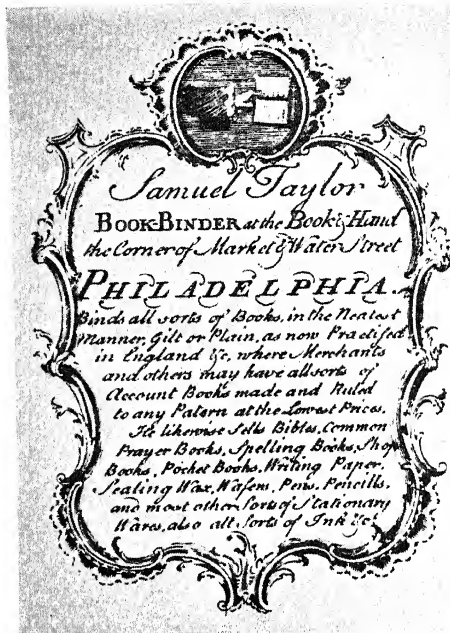 Samuel Taylor
BOOK-BINDER at the Book & Hand
the Corner of Market & Water Street
PHILADELPHIA.
Binds all sorts of Books, in the Neatest
Manner, Gilt or Plain, as now Practiſed
in England &c, where Merchants
and others may have all sorts of
Account Books made and Ruled
to any Patern at the Lowest Prices.
He likewise Sells Bibles, Common
Prayer Books, Spelling Books, Shop
Books, Pocket Books, Writing Paper,
Sealing Wax, Wafers, Pens, Pencills,
and most other Sorts of Stationary
Wares, also all Sorts of Ink &c.